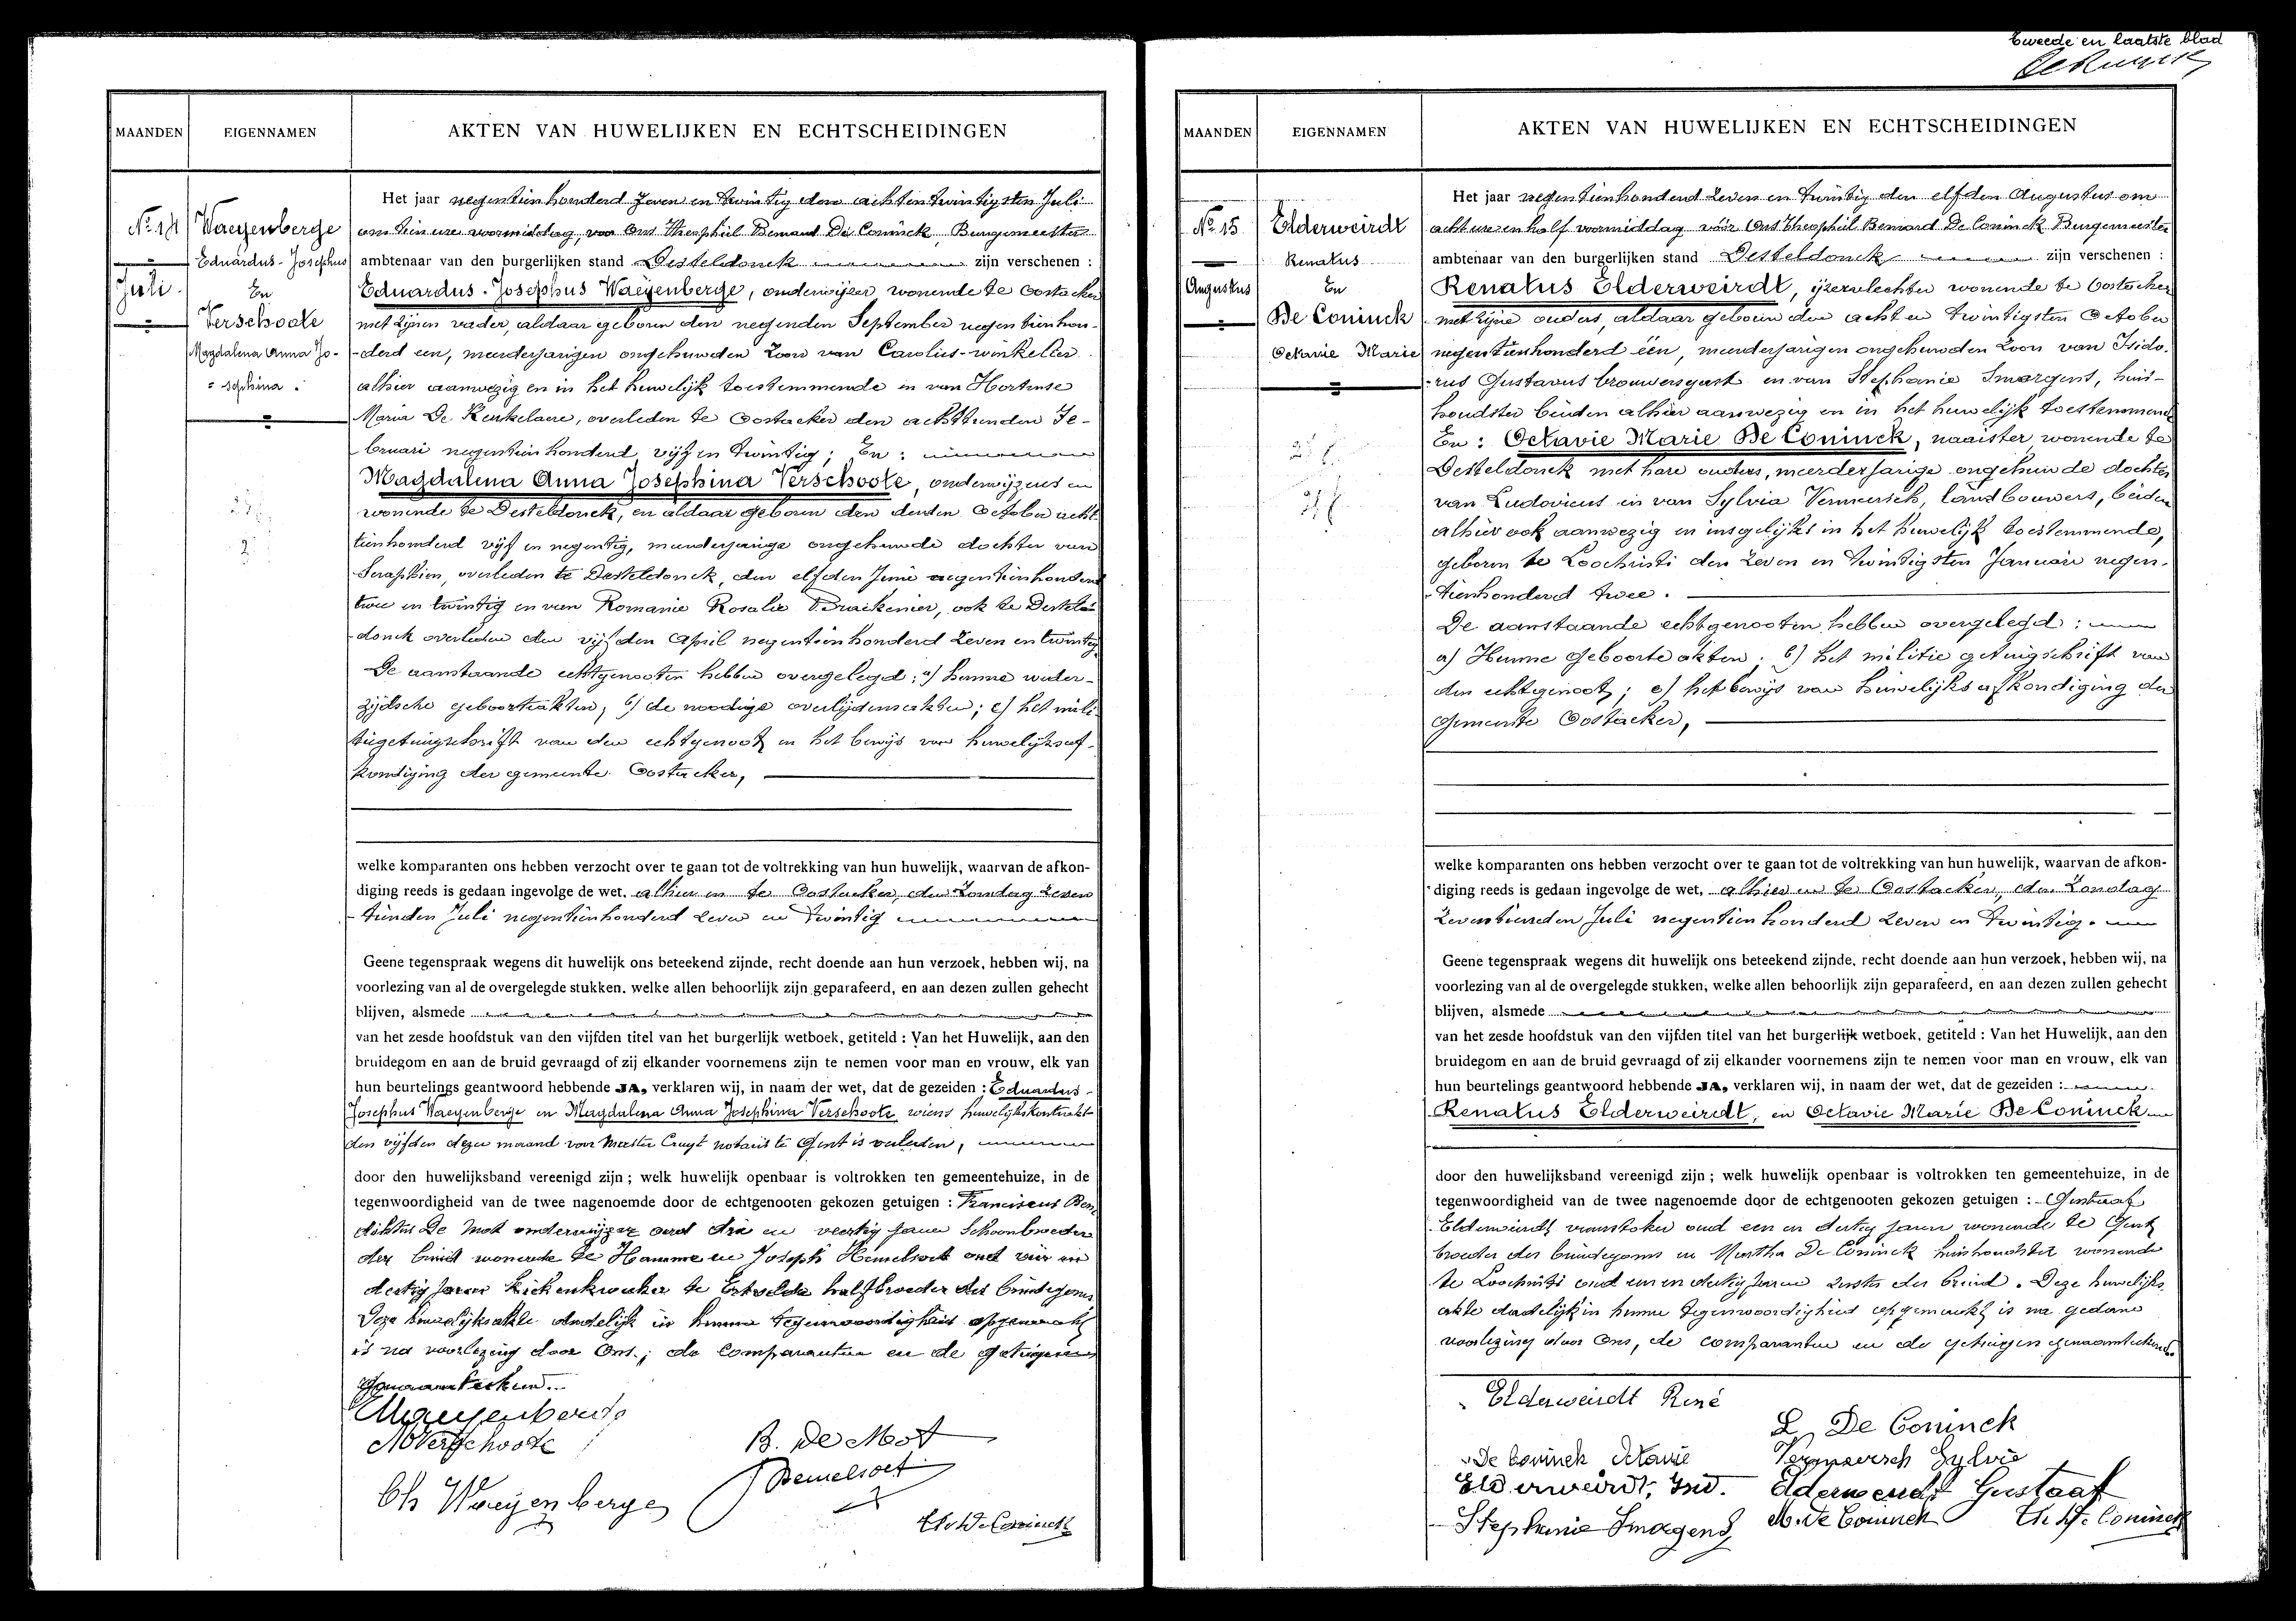 Tweede en laatste blad
MAANDEN
EIGENNAMEN
AKTEN VAN HUWELIJKEN EN ECHTSCHEIDINGEN
No. 14
Juli
Waeyenberge
Eduardus-Josephus
En
Verschoote
Magdalena Anna Jo-
sephina.
Het jaar negentienhonderd zeven en twintig den achtentwintigsten Juli
om tien ure voormiddag, voor Ons Theophiel Bernard De Coninck, Burgemeester
ambtenaar van den burgerlijken stand Desteldonck zijn verschenen :
Eduardus-Josephus Waeyenberge, onderwijzer wonende te Oostacker
met zijnen vader, aldaar geboren den negenden September negentienhon-
derd een, meerderjarigen ongehuwden zoon van Carolus-winkelier
alhier aanwezig en in het huwelijk toestemmende en van Hortense
Maria De Kerkelaere, overleden te Oostacker den achttienden Fe-
bruari negentienhonderd vijf en twintig; En :
Magdalena Anna Josephina Verschoote, onderwijzeres en
wonende te Desteldonck, en aldaar geboren den derden October acht
tienhonderd vijf en negentig, meerderjarige ongehuwde dochter van
Seraphien, overleden te Desteldonck, den elfden Juni negentienhonderd
twee en twintig en van Romanie Rosalie Braeckenier, ook te Destel-
donck overleden den vijfden April negentienhonderd zeven en twintig
De aanstaande echtgenooten hebben overgelegd: a) hunne weder-
zijdsche geboorteakten; b) de noodige overlijdensakten; c) het mili-
tiegetuigschrift van den echtgenoot en het bewijs van huwelijksaf-
kondiging der gemeente Oostacker,
welke komparanten ons hebben verzocht over te gaan tot de voltrekking van hun huwelijk, waarvan de afkon-
diging reeds is gedaan ingevolge de wet, alhier en te Oostacker, den Zondag zeven
tienden Juli negentienhonderd zeven en twintig
Geene tegenspraak wegens dit huwelijk ons beteekend zijnde, recht doende aan hun verzoek, hebben wij, na
voorlezing van al de overgelegde stukken, welke allen behoorlijk zijn geparafeerd, en aan dezen zullen gehecht
blijven, alsmede
van het zesde hoofdstuk van den vijfden titel van het burgerlijk wetboek, getiteld : Van het Huwelijk, aan den
bruidegom en aan de bruid gevraagd of zij elkander voornemens zijn te nemen voor man en vrouw, elk van
hun beurtelings geantwoord hebbende JA, verklaren wij, in naam der wet, dat de gezeiden : Eduardus-
Josephus Waeyenberge en Magdalena Anna Josephina Verschoote wiens huwelijkskontrakt
den vijfden dezer maand voor Meester Cruyt notaris te Gent is verleden,
door den huwelijksband vereenigd zijn ; welk huwelijk openbaar is voltrokken ten gemeentehuize, in de
tegenwoordigheid van de twee nagenoemde door de echtgenooten gekozen getuigen : Franciscus Bene
diktus De Mot onderwijzer oud drie en veertig jaren Schoonbroeder
der bruid wonende te Hamme en Joseph Hemelsoet oud vier en
dertig jaren kiekenkweeker te Ertvelde halfbroeder des bruidegoms
Deze huwelijksakte dadelijk in hunne tegenwoordigheid opgemaakt
is na voorlezing door Ons, de comparanten en de getuigen
genaamteekend.
Waeyenberge
M Verschoote
Ch Waeyenberge
B. De Mot
J Hemelsoet
Th. De Coninck
MAANDEN
EIGENNAMEN
AKTEN VAN HUWELIJKEN EN ECHTSCHEIDINGEN
No. 15
Augustus
Elderweirdt
Renatus
En
De Coninck
Octavie Marie
Het jaar negentienhonderd zeven en twintig den elfden Augustus om
acht ure en half voormiddag vóór Ons Theophiel Bernard De Coninck Burgemeester
ambtenaar van den burgerlijken stand Desteldonck zijn verschenen :
Renatus Elderweirdt, ijzervlechter wonende te Oostacker
met zijne ouders, aldaar geboren den acht en twintigsten October
negentienhonderd één, meerderjarigen ongehuwden zoon van Isido-
rus Gustavus brouwersgast en van Stephanie Smorgens, huis-
houdster beiden alhier aanwezig en in het huwelijk toestemmend
En : Octavie Marie De Coninck, naaister wonende te
Desteldonck met hare ouders, meerderjarige ongehuwde dochter
van Ludovicus en van Sylvia Vermeersch, landbouwers, beiden
alhier ook aanwezig en insgelijks in het huwelijk toestemmende,
geboren te Loochristi den zeven en twintigsten Januari negen-
tienhonderd twee.
De aanstaande echtgenooten hebben overgelegd :
a) Hunne geboorteakten; b) het militie getuigschrift van
den echtgenoot; c) het bewijs van huwelijksafkondiging der
gemeente Oostacker,
welke komparanten ons hebben verzocht over te gaan tot de voltrekking van hun huwelijk, waarvan de afkon-
diging reeds is gedaan ingevolge de wet, alhier en te Oostacker, den Zondag
zeventienden Juli negentienhonderd zeven en twintig.
Geene tegenspraak wegens dit huwelijk ons beteekend zijnde, recht doende aan hun verzoek, hebben wij, na
voorlezing van al de overgelegde stukken, welke allen behoorlijk zijn geparafeerd, en aan dezen zullen gehecht
blijven, alsmede
van het zesde hoofdstuk van den vijfden titel van het burgerlijk wetboek, getiteld : Van het Huwelijk, aan den
bruidegom en aan de bruid gevraagd of zij elkander voornemens zijn te nemen voor man en vrouw, elk van
hun beurtelings geantwoord hebbende JA, verklaren wij, in naam der wet, dat de gezeiden :
Renatus Elderweirdt, en Octavie Marie De Coninck
door den huwelijksband vereenigd zijn ; welk huwelijk openbaar is voltrokken ten gemeentehuize, in de
tegenwoordigheid van de twee nagenoemde door de echtgenooten gekozen getuigen : Gustaaf
Elderweirdt vuurstoker oud een en dertig jaren wonende te Gent
broeder des bruidegoms en Martha De Coninck huishoudster wonende
te Loochristi oud een en dertig jaren zuster der bruid. Deze huwelijks
akte dadelijk in hunne tegenwoordigheid opgemaakt is na gedane
voorlezing door Ons, de comparanten en de getuigen genaamteekend.
Elderweirdt René
L De Coninck
De Coninck Octavie
Vermeersch Sylvie
Elderweirdt, Isid.
Elderweirdt Gustaaf
Stephanie Smorgens
M. De Coninck
Th. De Coninck